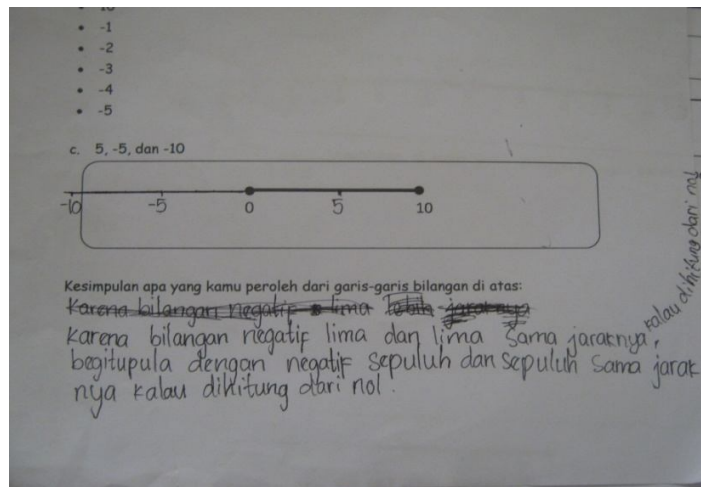 10
-1
-2
-3
-4
-5
c. 5, -5, dan -10
-10 -5 0 5 10
Kesimpulan apa yang kamu peroleh dari garis-garis bilangan di atas:
Karena bilangan negatif lima lebih jaraknya
Karena bilangan negatif lima dan lima sama jaraknya, kalau dihitung dari nol
begitupula dengan negatif sepuluh dan sepuluh sama jarak
nya kalau dihitung dari nol.